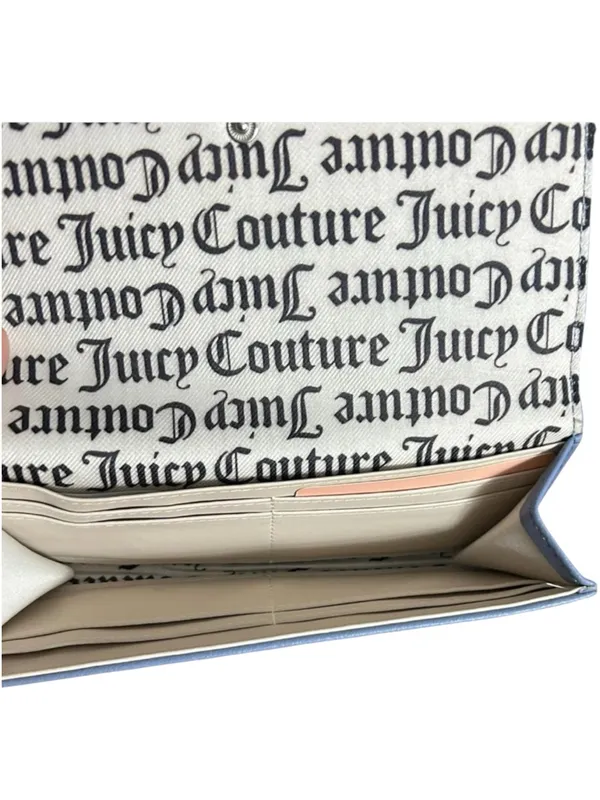 Couture Juicy Couture Juicy
re Juicy Couture Juicy Co
Couture Juicy Couture Juicy
ure Juicy Couture Juicy Co
Couture Juicy Couture Juicy
ure Juicy Couture Juicy Co